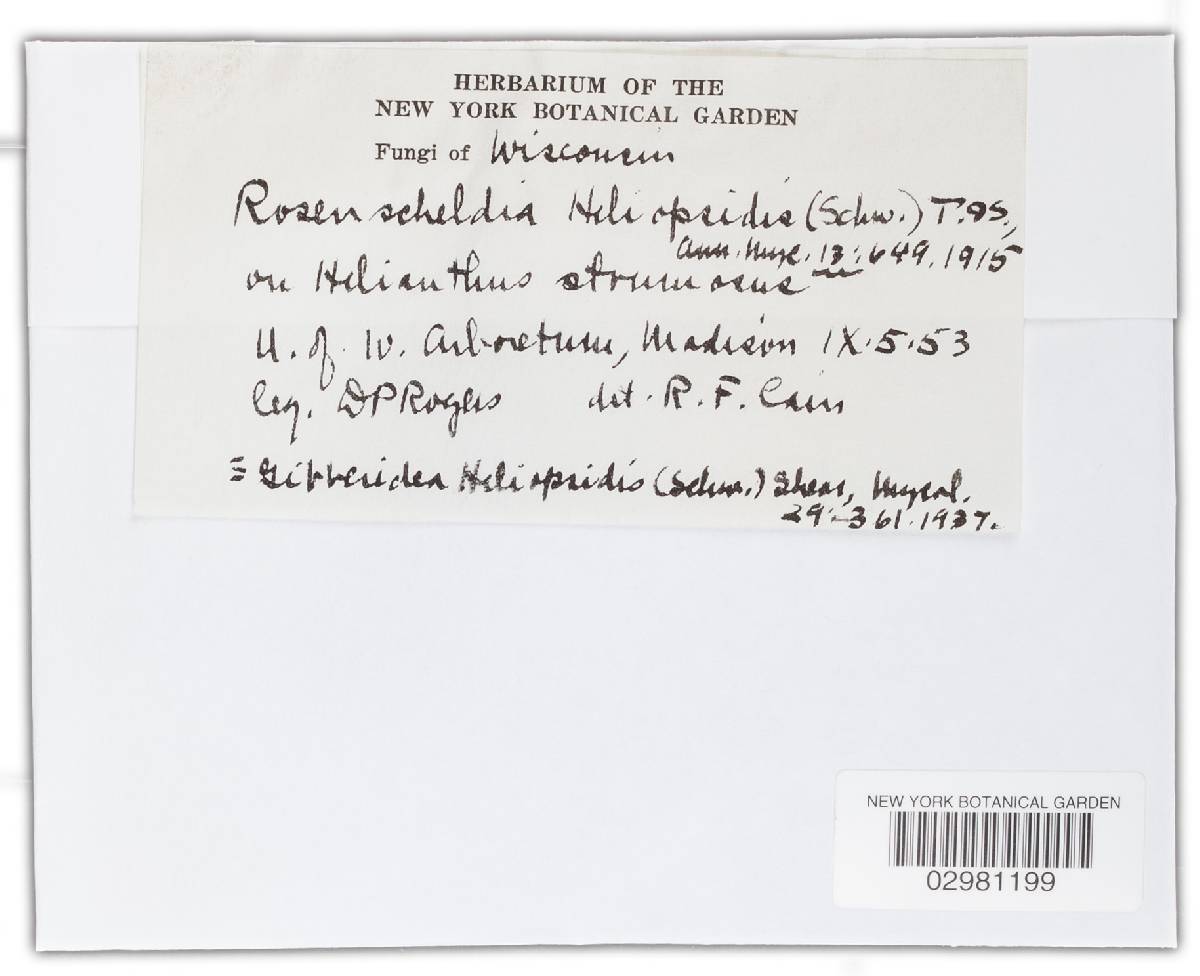 HERBARIUM OF THE
NEW YORK BOTANICAL GARDEN
Fungi of Wisconsin
Rosenscheldia Heliopsidis (Schw.) T. & S.,
Ann. Myc. 13:649.1915
on Helianthus strumosus
U. of W. Arboretum, Madison IX.5.53
leg. DPRogers det. R. F. Cain
≡ Gibberidea Heliopsidis (Schw.) Shear, Mycol.
29:361.1937.
NEW YORK BOTANICAL GARDEN
02981199